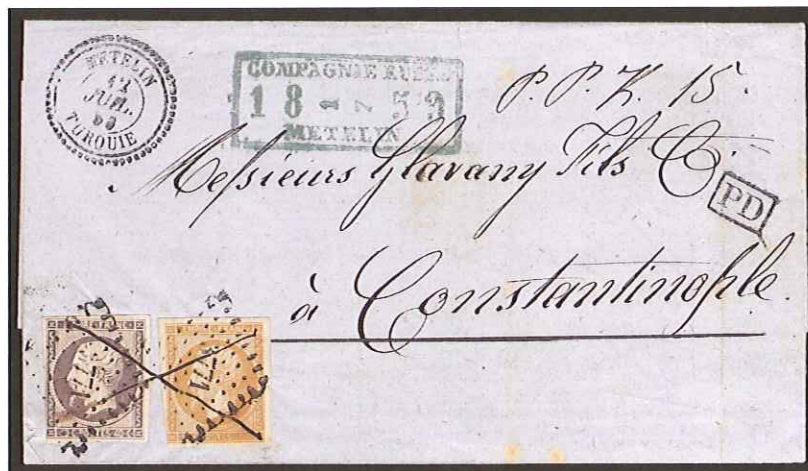 METELIN
12
JUIL.
59
TURQUIE
COMPAGNIE RUSSE
18 1 7 59
METELIN
P. P. K. 15.
Messieurs Glavany Fils &
PD
à Constantinople